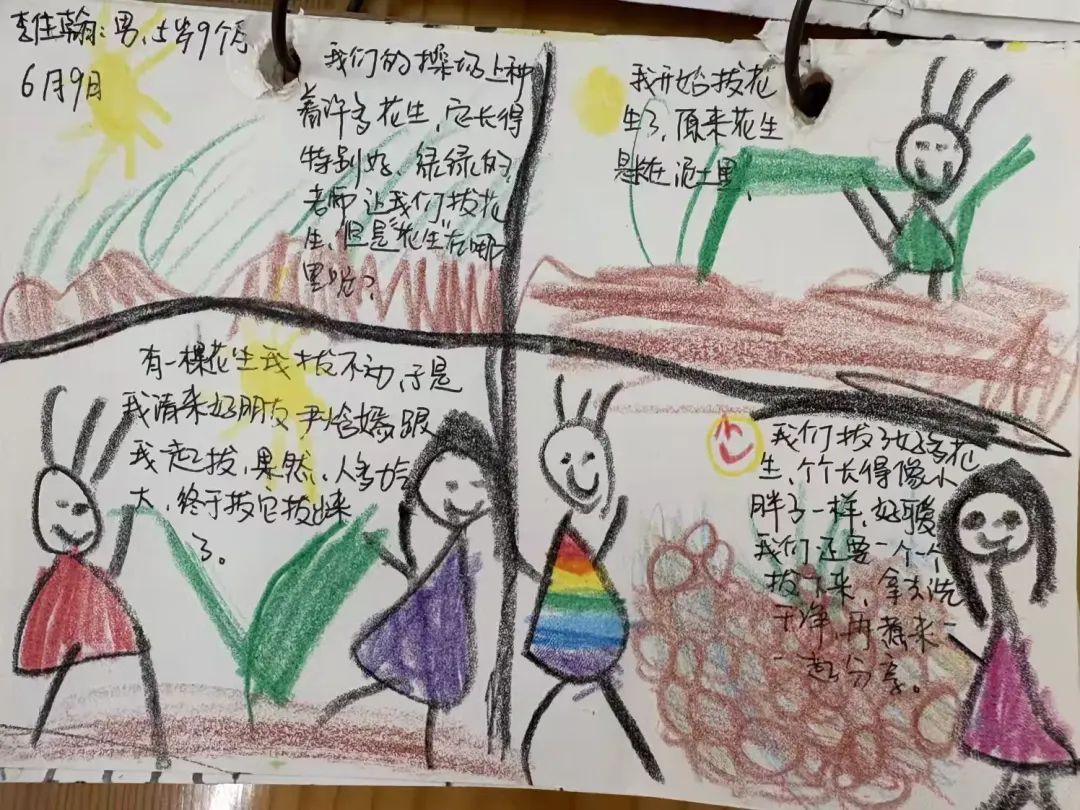 李佳翰:男,5岁9个月
6月9日
我们的操场上种
着许多花生,它长得
特别好,绿绿的,
老师让我们拔花
生,但是“花生”在哪
里呢?
我开始拔花
生了,原来花生
是长在泥土里
有一棵花生我拔不动,于是
我请来好朋友尹怡嫣跟
我一起拔,果然,人多力气
大,终于拔它拔出来
了。
我们拔了好多花
生,个个长得像小
胖子一样,好可爱
我们还要一个一个
拔下来,拿去洗
干净,再蒸来一
一起分享。